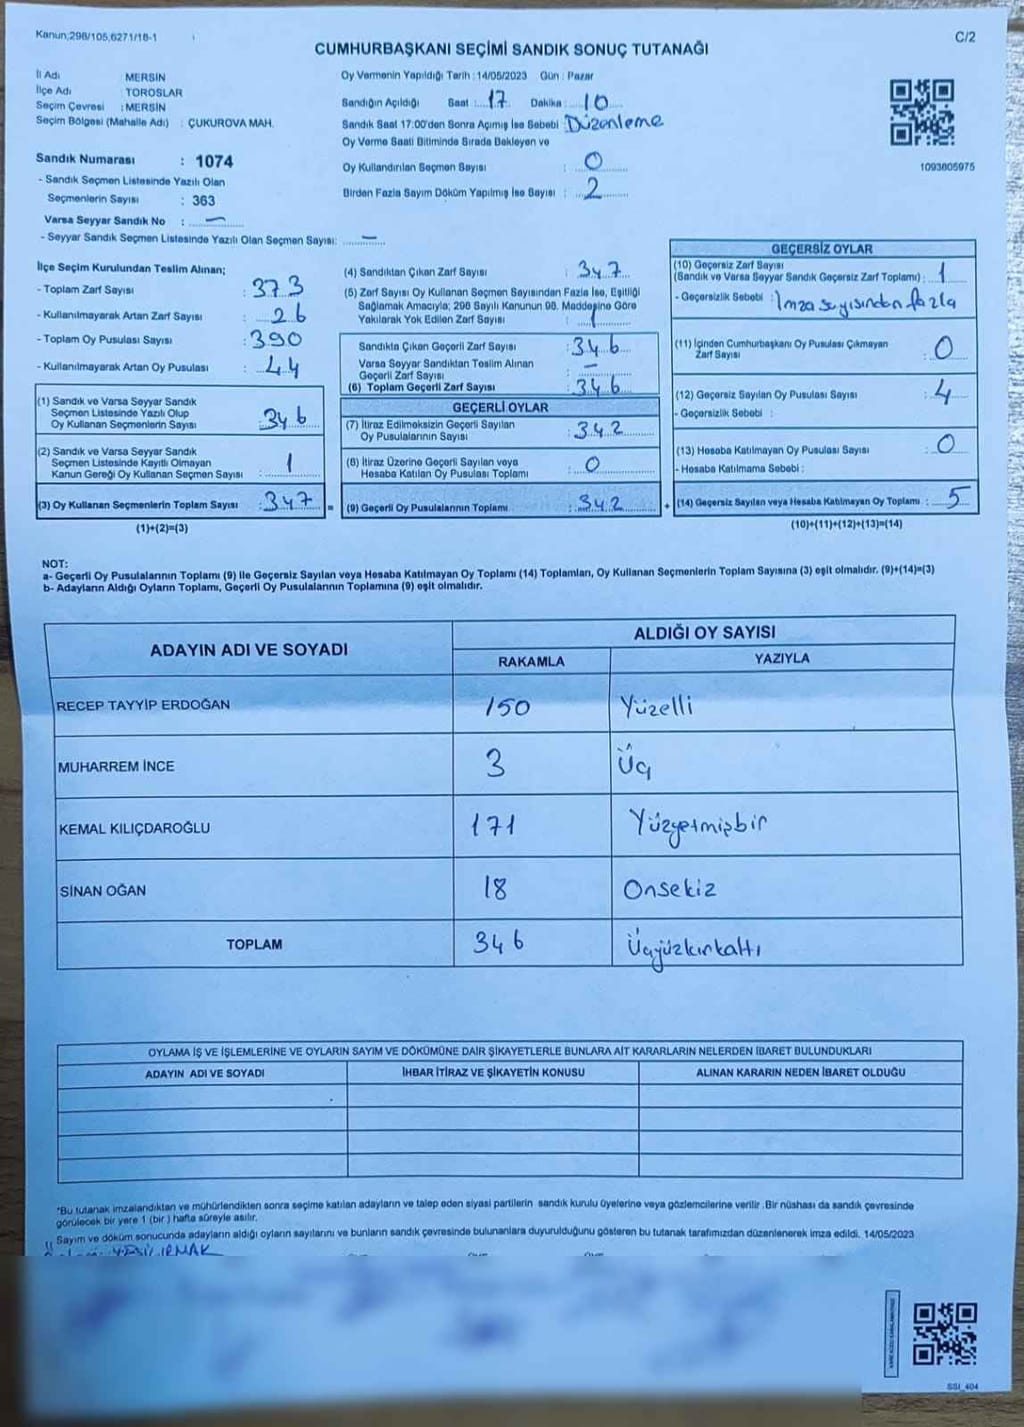 Kanun;298/105,6271/18-1
C/2
CUMHURBAŞKANI SEÇİMİ SANDIK SONUÇ TUTANAĞI
İl Adı : MERSİN
İlçe Adı : TOROSLAR
Seçim Çevresi : MERSİN
Seçim Bölgesi (Mahalle Adı) : ÇUKUROVA MAH.
Oy Vermenin Yapıldığı Tarih : 14/05/2023 Gün : Pazar
Sandığın Açıldığı Saat : 17 Dakika : 10
Sandık Saat 17:00'den Sonra Açımış İse Sebebi : Düzenleme
Oy Verme Saati Bitiminde Sırada Bekleyen ve
Oy Kullandırılan Seçmen Sayısı : 0
Birden Fazla Sayım Döküm Yapılmış İse Sayısı : 2
1093805975
Sandık Numarası : 1074
- Sandık Seçmen Listesinde Yazılı Olan
Seçmenlerin Sayısı : 363
Varsa Seyyar Sandık No : —
- Seyyar Sandık Seçmen Listesinde Yazılı Olan Seçmen Sayısı: —
İlçe Seçim Kurulundan Teslim Alınan;
- Toplam Zarf Sayısı : 373
- Kullanılmayarak Artan Zarf Sayısı : 26
- Toplam Oy Pusulası Sayısı : 390
- Kullanılmayarak Artan Oy Pusulası : 44
(1) Sandık ve Varsa Seyyar Sandık
Seçmen Listesinde Yazılı Olup
Oy Kullanan Seçmenlerin Sayısı : 346
(2) Sandık ve Varsa Seyyar Sandık
Seçmen Listesinde Kayıtlı Olmayan
Kanun Gereği Oy Kullanan Seçmen Sayısı : 1
(3) Oy Kullanan Seçmenlerin Toplam Sayısı : 347 =
(1)+(2)=(3)
(4) Sandıktan Çıkan Zarf Sayısı : 347
(5) Zarf Sayısı Oy Kullanan Seçmen Sayısından Fazla İse, Eşitliği
Sağlamak Amacıyla; 298 Sayılı Kanunun 98. Maddesine Göre
Yakılarak Yok Edilen Zarf Sayısı : 1
Sandıkta Çıkan Geçerli Zarf Sayısı : 346
Varsa Seyyar Sandıktan Teslim Alınan
Geçerli Zarf Sayısı : —
(6) Toplam Geçerli Zarf Sayısı : 346
GEÇERLİ OYLAR
(7) İtiraz Edilmeksizin Geçerli Sayılan
Oy Pusulalarının Sayısı : 342
(8) İtiraz Üzerine Geçerli Sayılan veya
Hesaba Katılan Oy Pusulası Toplamı : 0
(9) Geçerli Oy Pusulalarının Toplamı : 342 +
GEÇERSİZ OYLAR
(10) Geçersiz Zarf Sayısı
(Sandık ve Varsa Seyyar Sandık Geçersiz Zarf Toplamı) : 1
- Geçersizlik Sebebi : İmza sayısından fazla
(11) İçinden Cumhurbaşkanı Oy Pusulası Çıkmayan
Zarf Sayısı : 0
(12) Geçersiz Sayılan Oy Pusulası Sayısı : 4
- Geçersizlik Sebebi :
(13) Hesaba Katılmayan Oy Pusulası Sayısı : 0
- Hesaba Katılmama Sebebi :
(14) Geçersiz Sayılan veya Hesaba Katılmayan Oy Toplamı : 5
(10)+(11)+(12)+(13)=(14)
NOT:
a- Geçerli Oy Pusulalarının Toplamı (9) ile Geçersiz Sayılan veya Hesaba Katılmayan Oy Toplamı (14) Toplamları, Oy Kullanan Seçmenlerin Toplam Sayısına (3) eşit olmalıdır. (9)+(14)=(3)
b- Adayların Aldığı Oyların Toplamı, Geçerli Oy Pusulalarının Toplamına (9) eşit olmalıdır.
ADAYIN ADI VE SOYADI
ALDIĞI OY SAYISI
RAKAMLA YAZIYLA
RECEP TAYYİP ERDOĞAN 150 Yüzelli
MUHARREM İNCE 3 Üç
KEMAL KILIÇDAROĞLU 171 Yüzyetmişbir
SİNAN OĞAN 18 Onsekiz
TOPLAM 346 Üçyüzkırkaltı
OYLAMA İŞ VE İŞLEMLERİNE VE OYLARIN SAYIM VE DÖKÜMÜNE DAİR ŞİKAYETLERLE BUNLARA AİT KARARLARIN NELERDEN İBARET BULUNDUKLARI
ADAYIN ADI VE SOYADI İHBAR İTİRAZ VE ŞİKAYETİN KONUSU ALINAN KARARIN NEDEN İBARET OLDUĞU
*Bu tutanak imzalandıktan ve mühürlendikten sonra seçime katılan adayların ve talep eden siyasi partilerin sandık kurulu üyelerine veya gözlemcilerine verilir. Bir nüshası da sandık çevresinde
görülecek bir yere 1 (bir ) hafta süreyle asılır.
Sayım ve döküm sonucunda adayların aldığı oyların sayılarını ve bunların sandık çevresinde bulunanlara duyurulduğunu gösteren bu tutanak tarafımızdan düzenlenerek imza edildi. 14/05/2023
YEŞİLIRMAK
SSI_404